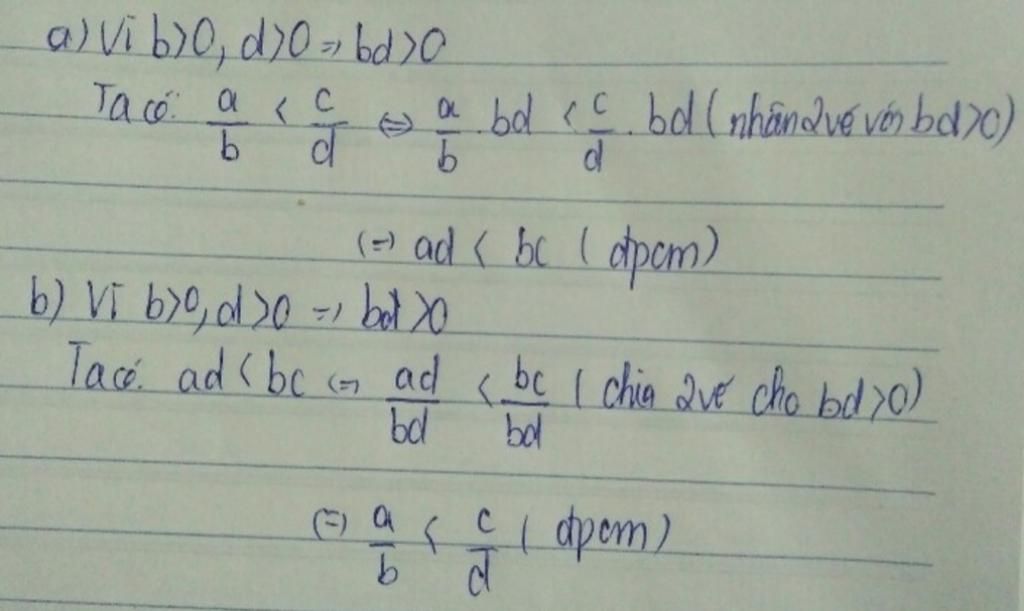 a) Vì b>0, d>0 => bd>0
Ta có: a/b < c/d <=> a/b . bd < c/d . bd (nhân 2 vế với bd>0)
<=> ad < bc (đpcm)
b) Vì b>0, d>0 => bd>0
Ta có: ad < bc <=> ad/bd < bc/bd (chia 2 vế cho bd>0)
<=> a/b < c/d (đpcm)